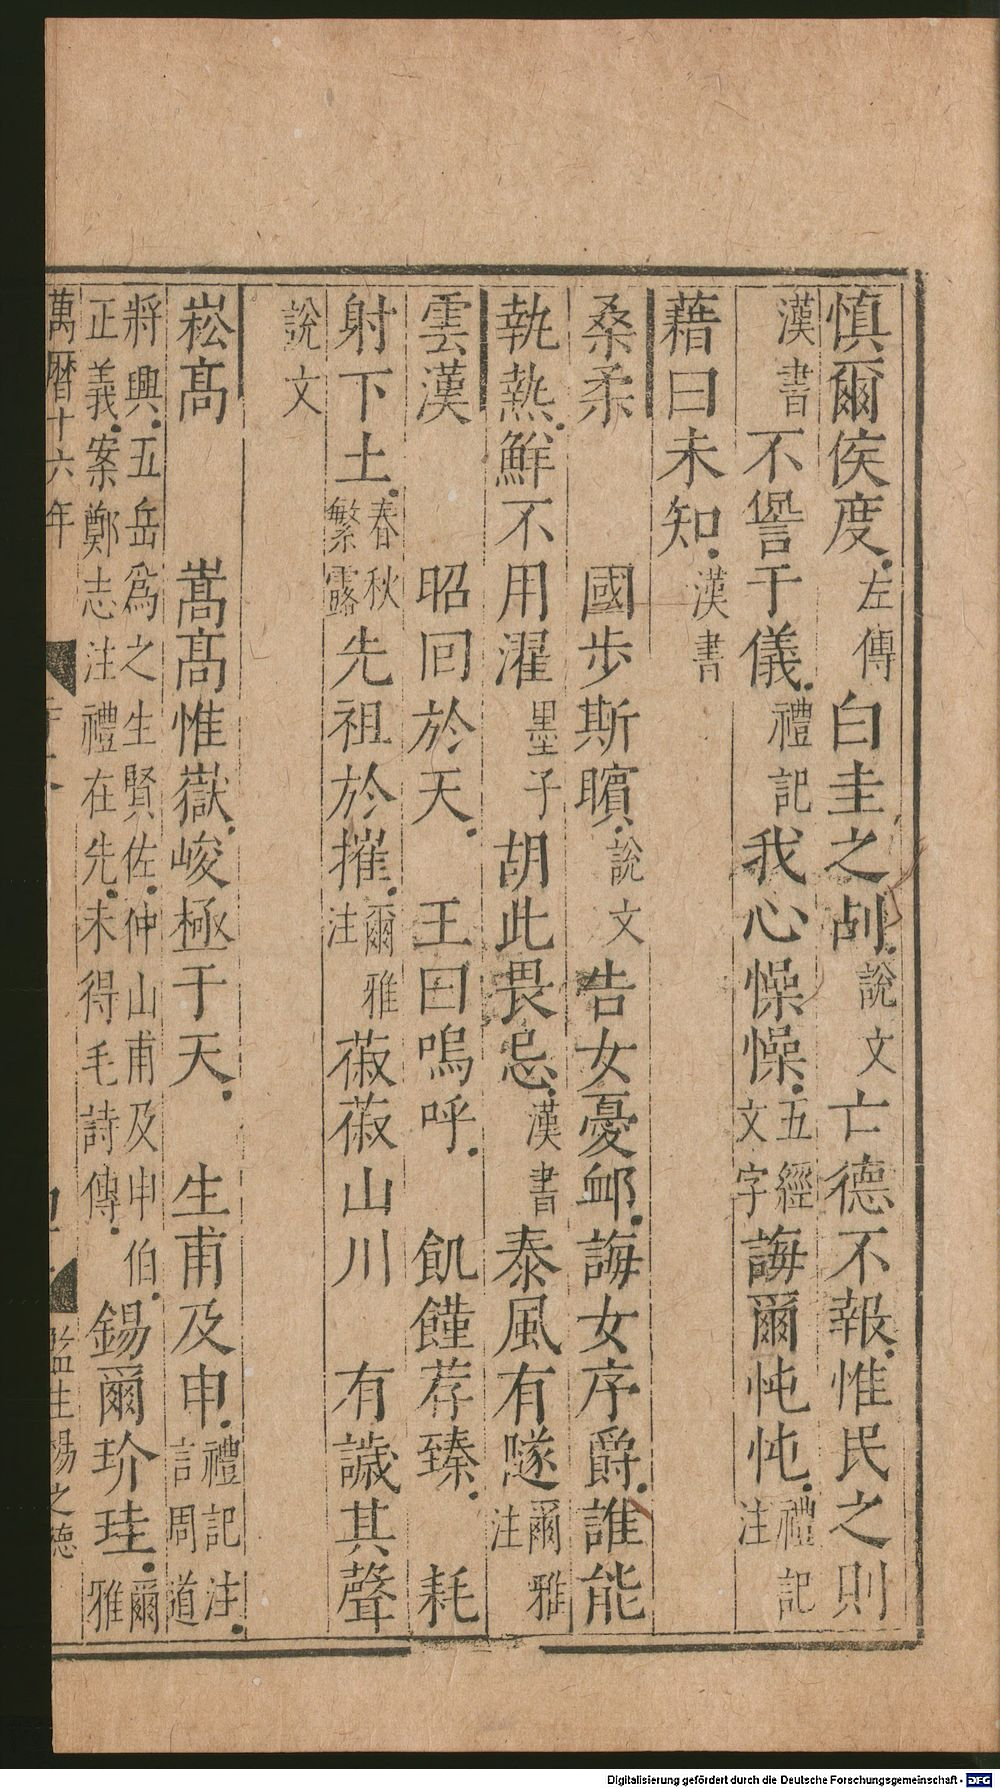 慎爾侯度左傳白圭之刮說文亡德不報惟民之則
漢書不諐于儀禮記我心懆懆五經文字誨爾忳忳禮記注
藉曰未知漢書
桑柔國步斯矉說文告女憂邺誨女序爵誰能
執熱鮮不用濯墨子胡此畏忌漢書泰風有隧爾雅注
雲漢昭回於天王曰嗚呼飢饉荐臻耗
射下土春秋繁露先祖於摧爾雅注菽菽山川有諴其聲
說文
崧高嵩高惟嶽峻極于天生甫及申禮記注言周道
將興五岳爲之生賢佐仲山甫及申伯正義案鄭志注禮在先未得毛詩傳錫爾玠珪爾雅
萬曆十六年 監生楊之德
Digitalisierung gefördert durch die Deutsche Forschungsgemeinschaft - DFG